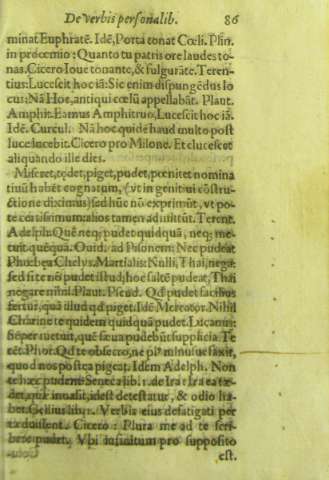 De verbis personalib. 86
minat Euphratē. Idē, Porta tonat Cœli. Plin.
in procemio: Quanto tu patris ore laudes to-
nas. Cicero Ioue tonante, & fulgurāte. Teren-
tius: Lucescit hoc iā: Sic enim dispungēdus lo
cus: Nā Hoc, antiqui cœlū appellabāt. Plaut.
Amphit. Eamus Amphitruo, Lucescit hoc iā.
Idē. Curcul. Nā hoc quidē haud multo post
luce lucebit. Cicero pro Milone. Et lucescet
aliquando ille dies.
Miseret, tędet, piget, pudet, pœnitet nomina
tiuū habēt cognatum, (vt in genitiui cōstru-
ctione diximus) sed hūc nō exprimūt, vt po-
te certissimum: alios tamen admittūt. Terent.
Adelph. Quē neq; pudet quidquā, neq; me-
tuit quēquā. Ouid. ad Pisonem: Nec pudeat
Phœbea Chelys. Martialis: Nulli, Thai, negas
sed si te nō pudet istud; hoc saltē pudeat, Thai
negare nihil. Plaut. Pseud. Qđ pudet facilius
fertur, quā illud qđ piget. Idē Mercator. Nihil
Charine te quidem quidquā pudet. Lucanus:
Semper metuit, quē sæua pudebūt supplicia. Te
rēt. Phor. Qđ te obsecro, ne minuius faxit,
quod nos postea pigeat. Idem Adelph. Non
te hæc pudent Seneca libr. de Ira: Ira ea tæ-
det, quæ inuasit, idest detestatur, & odio ha-
bet. Gellius libr. Verbis eius defatigati per
tæduissent. Cicero: Plura me ad te scri-
bere pudet. Vbi infinitum pro supposito
est.